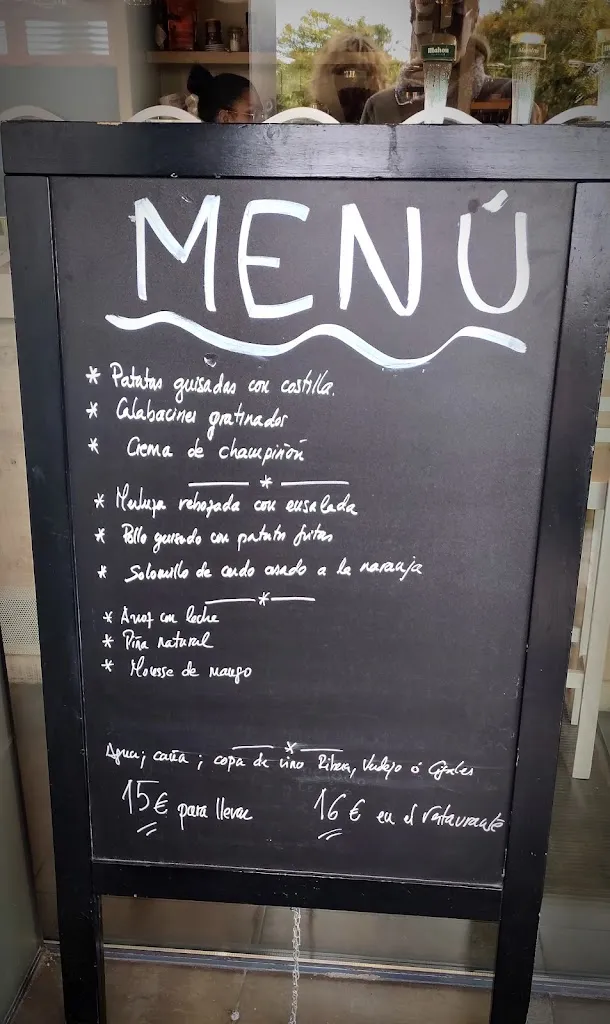 Mahou
MENÚ
* Patatas guisadas con costilla.
* Calabacines gratinados
* Crema de champiñón
*
* Merluza rebozada con ensalada
* Pollo guisado con patatas fritas
* Solomillo de cerdo asado a la naranja
*
* Arroz con leche
* Piña natural
* Mousse de mango
*
Agua; caña; copa de vino Ribera, Verdejo ó Cigales
15€ para llevar 16€ en el restaurante